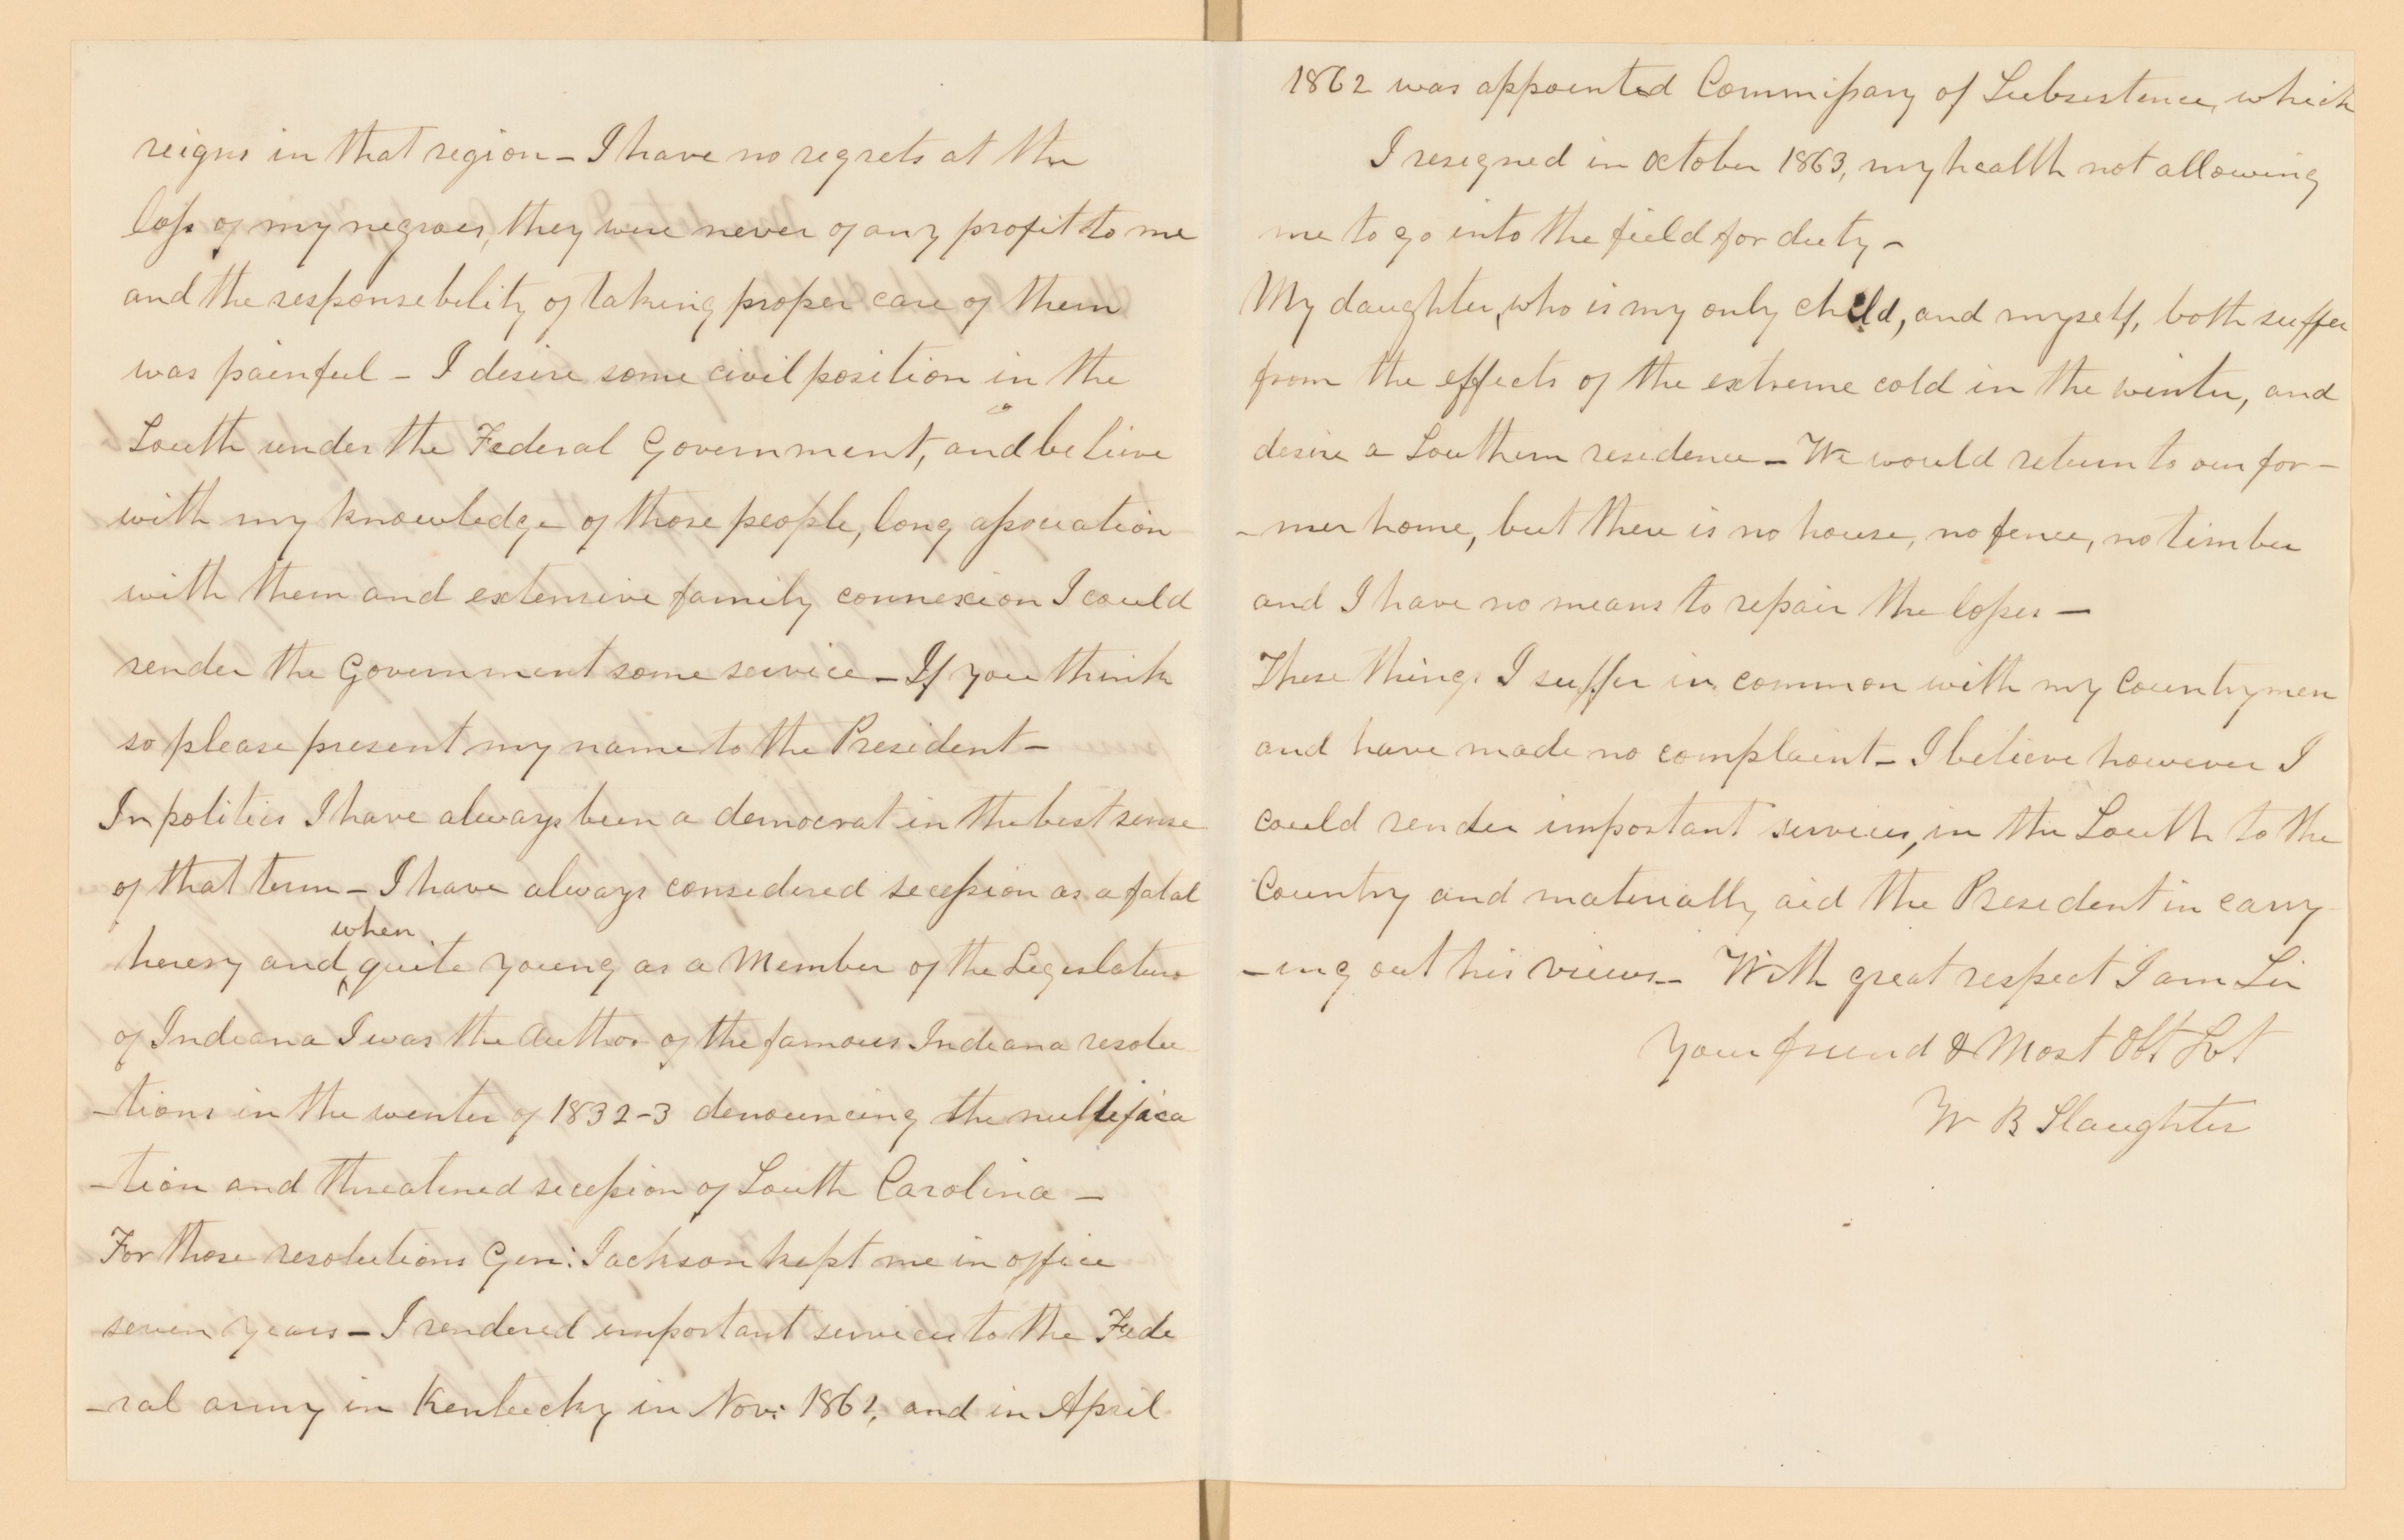 reigns in that region – I have no regrets at the
loss of my negroes, they were never of any profit to me
and the responsebility of taking proper care of them
was painful – I desire some civil position in the
South under the Federal Government, and believe
with my knowledge of those people, long association
with them and extensive family connexion I could
render the Government some service – If you think
so please present my name to the President –
In politics I have always been a democrat in the best sense
of that term – I have always considered secession as a fatal
when
heresy and quite young as a Member of the Legislature
of Indiana I was the Author of the famous Indiana resolu
-tions in the winter of 1832-3 denouncing the nullifica
-tion and threatened secession of South Carolina –
For those resolutions Gen: Jackson kept me in office
seven years – I rendered important services to the Fede
-ral army in Kentucky in Nov: 1861, and in April
1862 was appointed Commissary of Subsistence, which
I resigned in October 1863, my health not allowing
me to go into the field for duty –
My daughter, who is my only child, and myself, both suffer
from the effects of the extreme cold in the winter, and
desire a Southern residence – We would return to our for-
-mer home, but there is no house, no fence, no timber
and I have no means to repair the losses –
These things I suffer in common with my Countrymen
and have made no complaint – I believe however I
could render important services, in the South to the
Country and materially aid the President in carry
-ing out his views – With great respect I am Sir
Your friend & Most Obt Svt
W B Slaughter